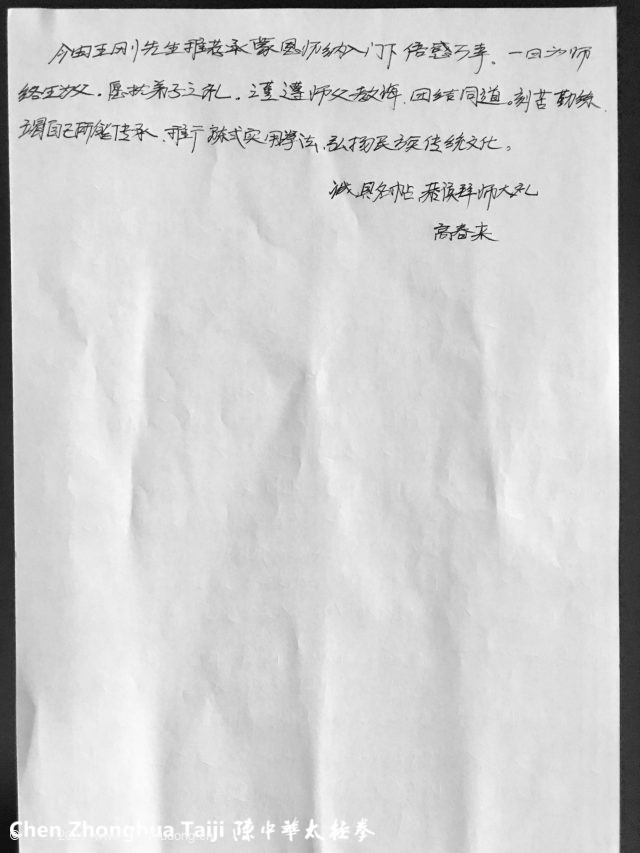 今由王刚先生推荐承蒙恩师纳入门下倍感万幸。一日为师
终生为父。愿执弟子之礼。谨遵师父教诲,团结同道。刻苦勤练,
竭自己所能传承、推广陈式实用拳法,弘扬民族传统文化。
诚具名帖,恭候拜师大礼
高春来
Chen Zhonghua Taiji 陳中華太极拳